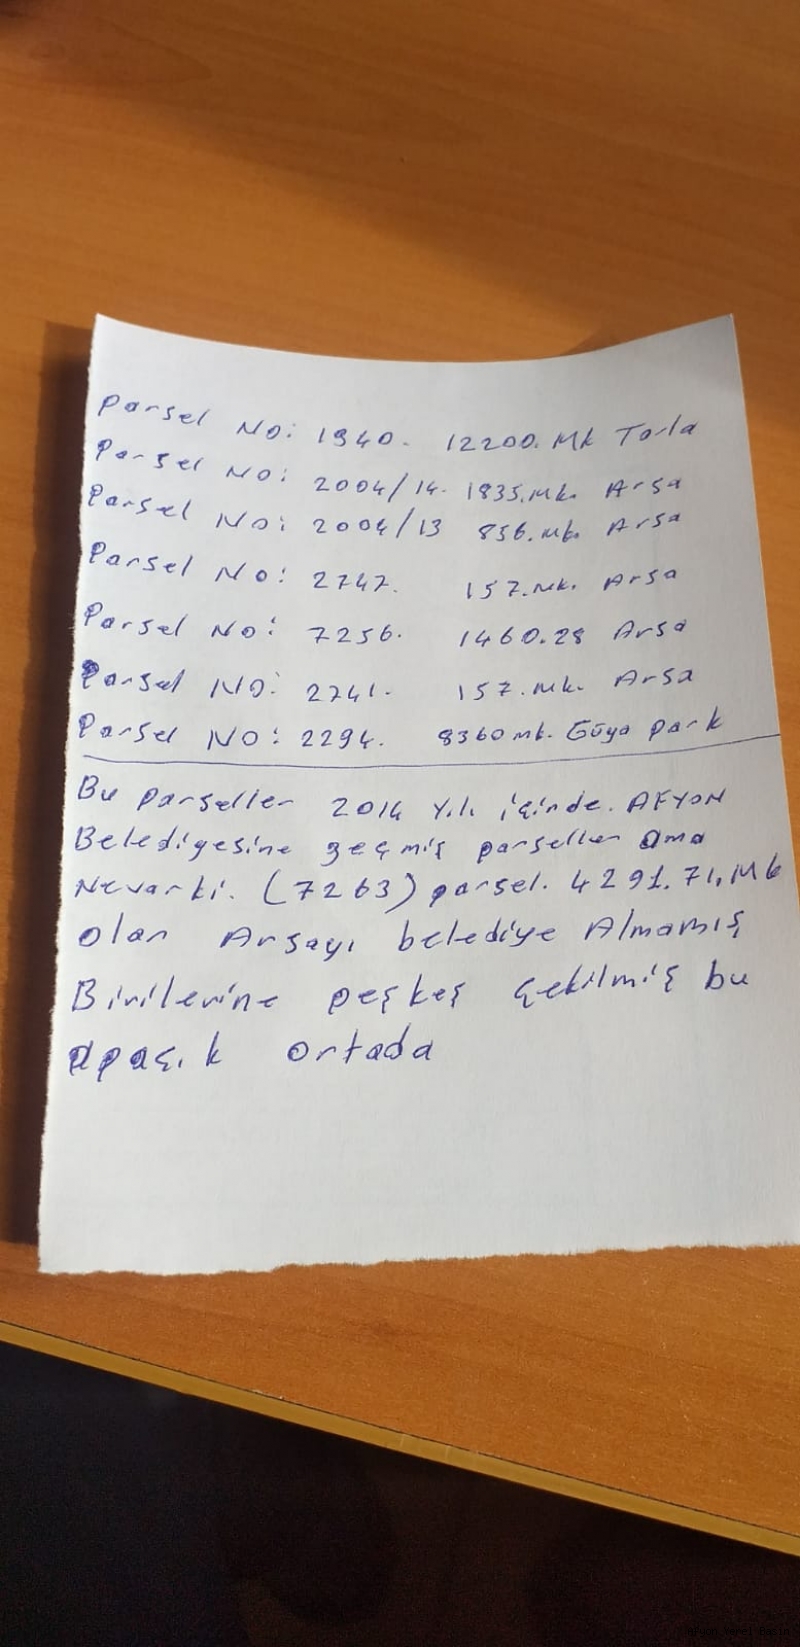 Parsel No: 1940. 12200. Mk Tarla
Parsel No: 2004/14. 1835.Mk. Arsa
Parsel No: 2004/13 856.Mk. Arsa
Parsel No: 2747. 157.Mk. Arsa
Parsel No: 7256. 1460.28 Arsa
Parsel No: 2741. 157.Mk. Arsa
Parsel No: 2294. 8360 mk. Güya park
Bu parseller 2014 Yılı içinde. AFYON
Belediyesine geçmiş parseller Ama
Nevarki. (7263) parsel. 4291.71, Mk
olan Arsayı belediye Almamış
Birilerine peşkeş çekilmiş bu
apaçık ortada